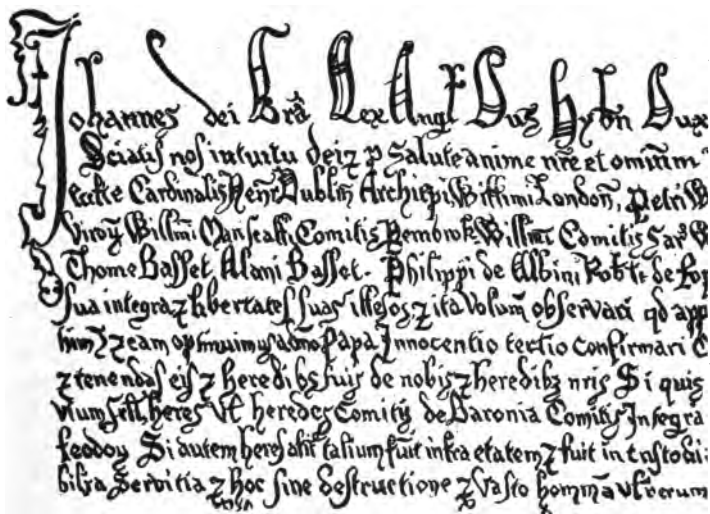 Johannes dei Gra Rex Angl Dns Hybn Dux
Sciatis nos intuitu dei ⁊ p salute anime nre et omnium
eccte Cardinalis Henr Dublin Archiepi, Willimi London, Petri W
Willmi Comitis Pembrok Willmi Comitis Sar W
Thome Basset, Alani Basset. Philippi de Albini Robti de Rop
sua integra ⁊ libertates suas illesas ⁊ ita Volum observari qd app
⁊ eam Papa Innocentio tertio Confirmari
⁊ tenendas eis ⁊ heredibs suis de nobis ⁊ heredibz nris Si quis
heres vt heredes Comitis de Baronia Comitis Integra
feodoy Si autem heres talium fuit infra etatem ⁊ fuit in Custodia
Servitia ⁊ hoc sine destructione ⁊ Vasto hominum